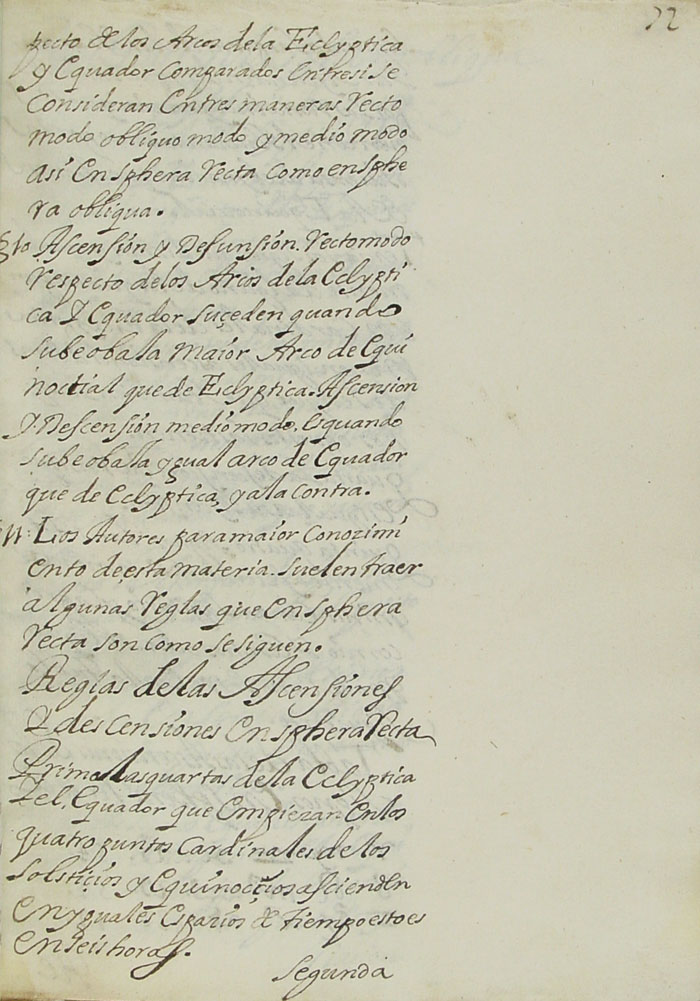 22
pecto de los Arcos dela Eclyptica
y Equador Comparados Entresi se
Consideran Entres maneras Recto
modo obliquo modo y medio modo
así En sphera Recta como en sphe
ra obliqua.
Ascensión y Desunsión. Rectomodo
Respecto delos Arcos dela Eclypti
ca Y Equador suçeden quando
sube oba la maior Arco de Equi
noctial que de Eclyptica. Ascension
Y Descensión medio modo. Es quando
sube oba la ygual arco de Equador
que de Eclyptica, y ala Contra.
Los Autores para maior Conozimi
ento de esta materia. suelen traer
algunas Reglas que En sphera
Recta son como se siguen.
Reglas de las Ascensiones
Y descensiones En sphera Recta
Prima las quartas de la Eclyptica
Y el, Equador que Empiezan En los
quatro puntos Cardinales de los
solstiçios y Equinocçios ascienden
en yguales Espazios de tiempo esto es
En seis horas.
segunda